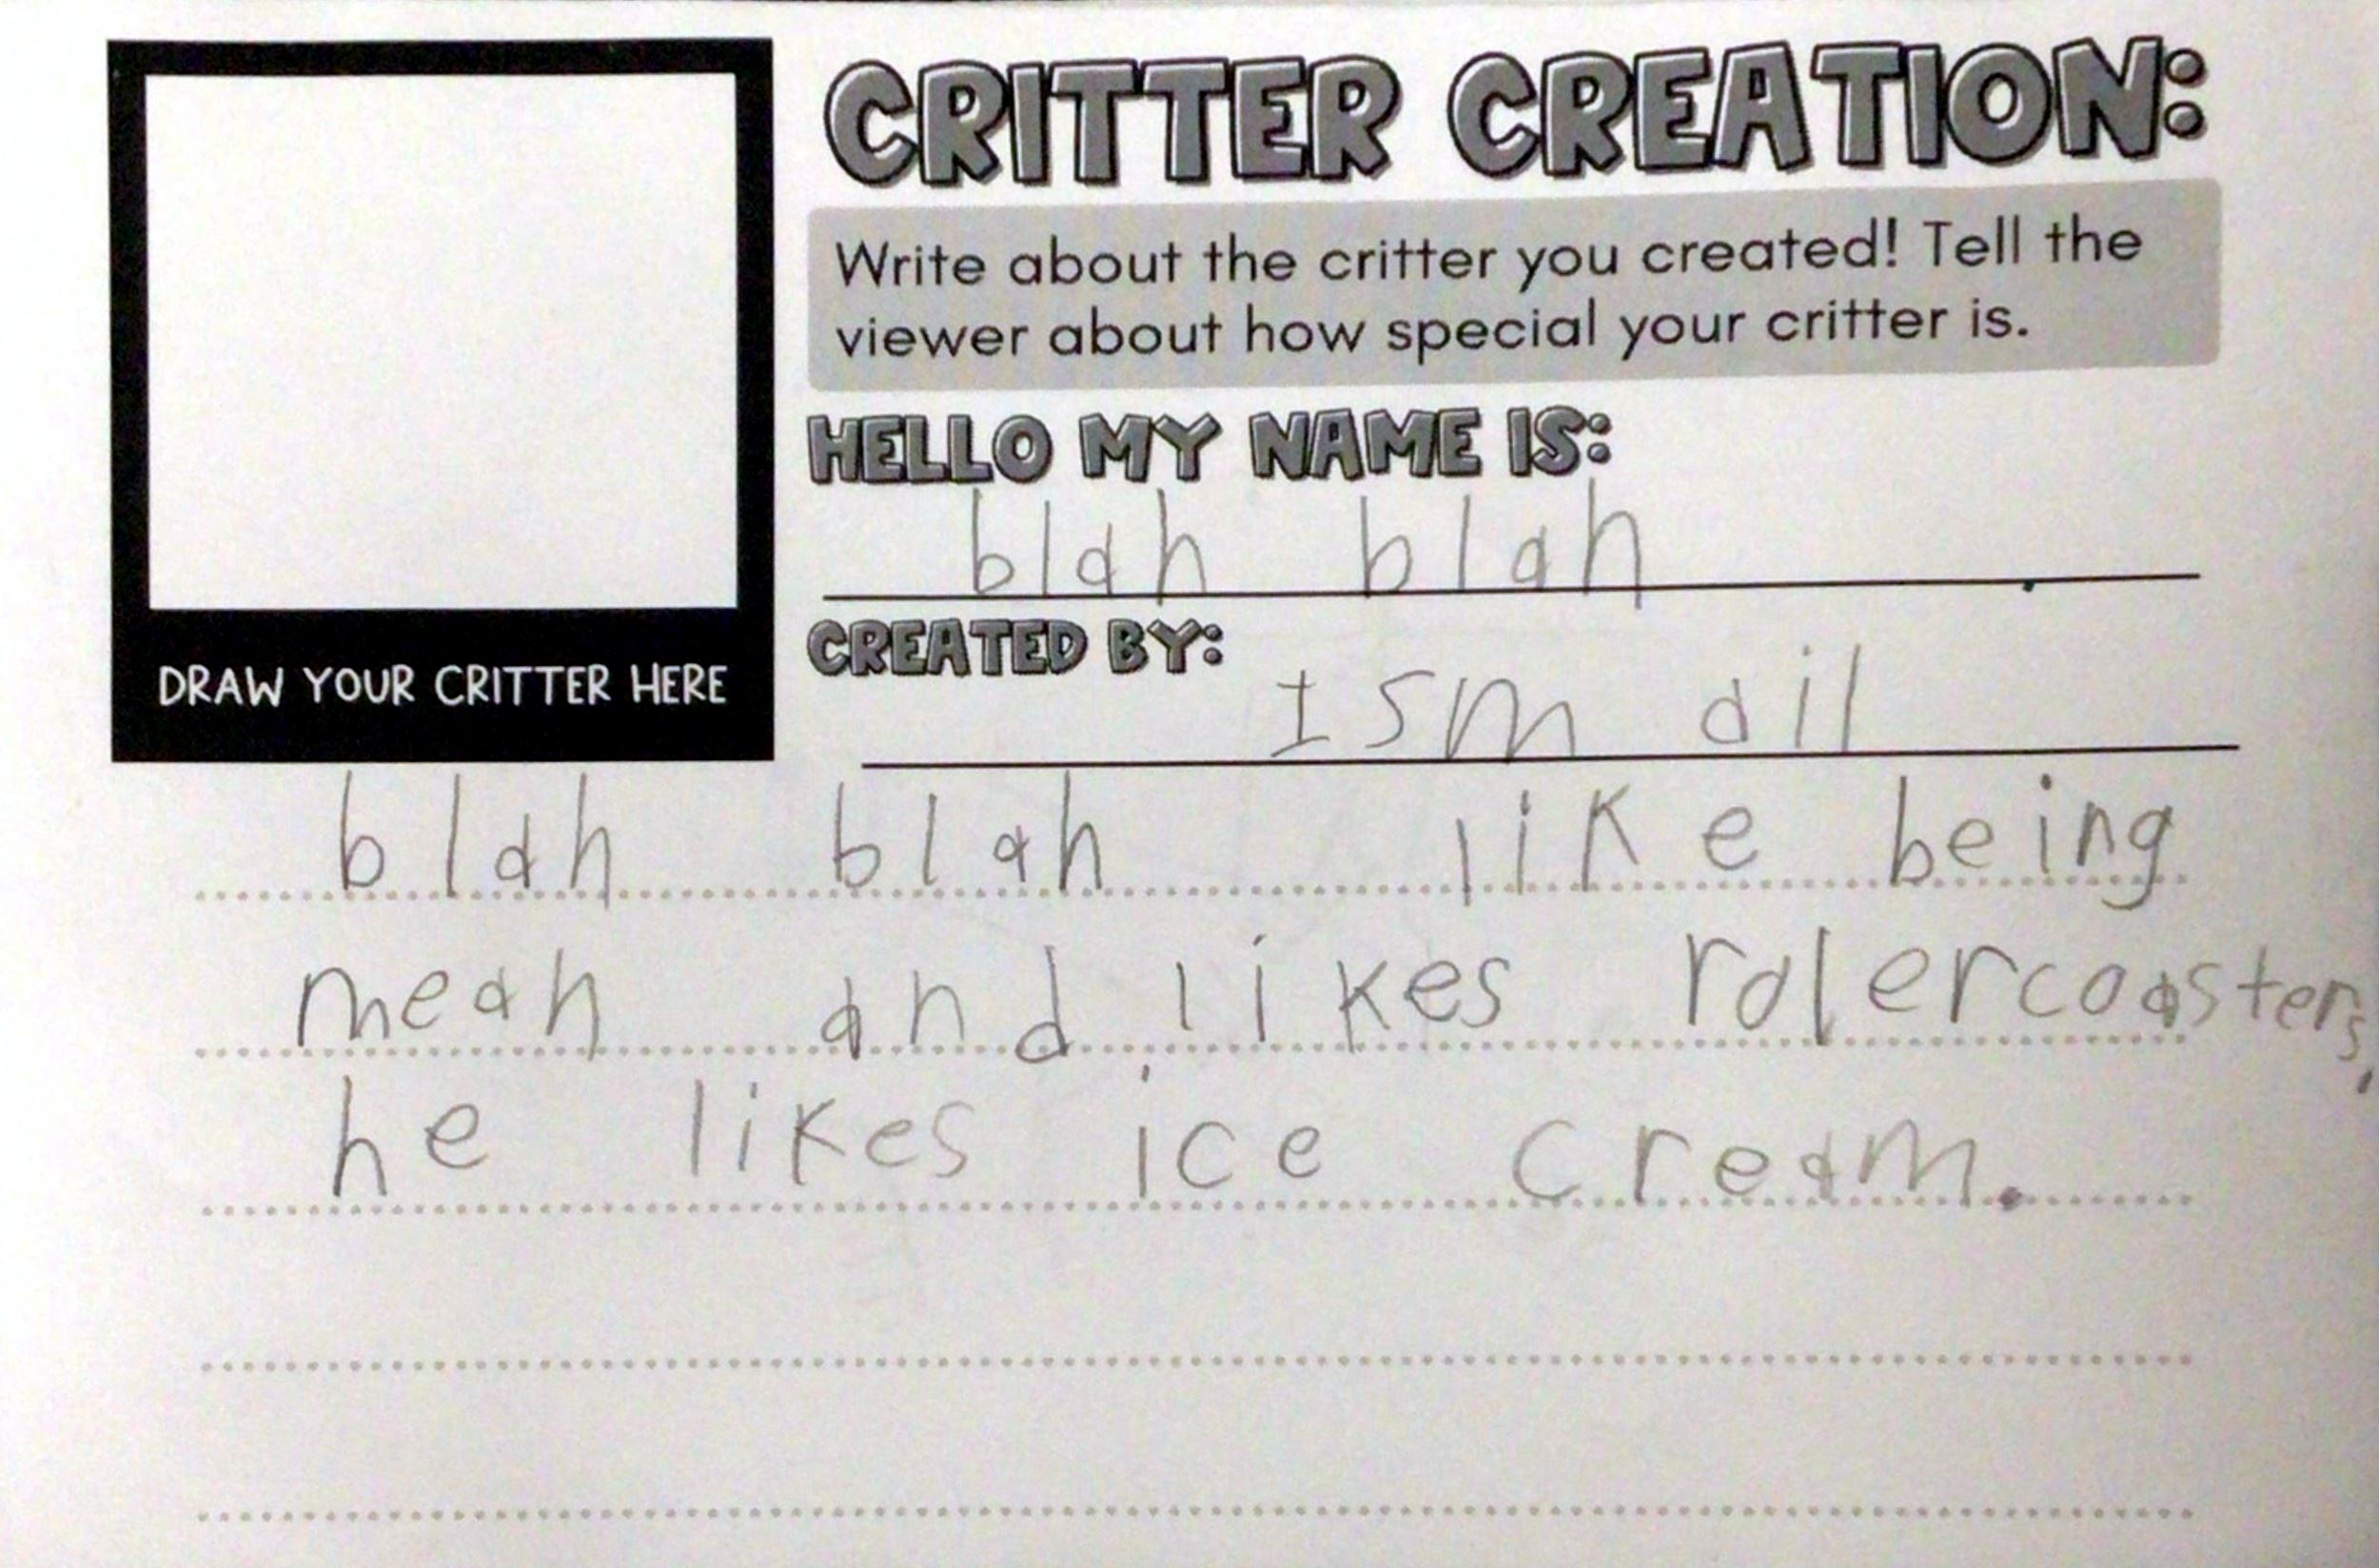 CRITTER CREATION:
Write about the critter you created! Tell the
viewer about how special your critter is.
HELLO MY NAME IS:
blah blah
DRAW YOUR CRITTER HERE
CREATED BY:
Ism ail
blah blah like being
mean and likes rolercoasters.
he likes ice cream.